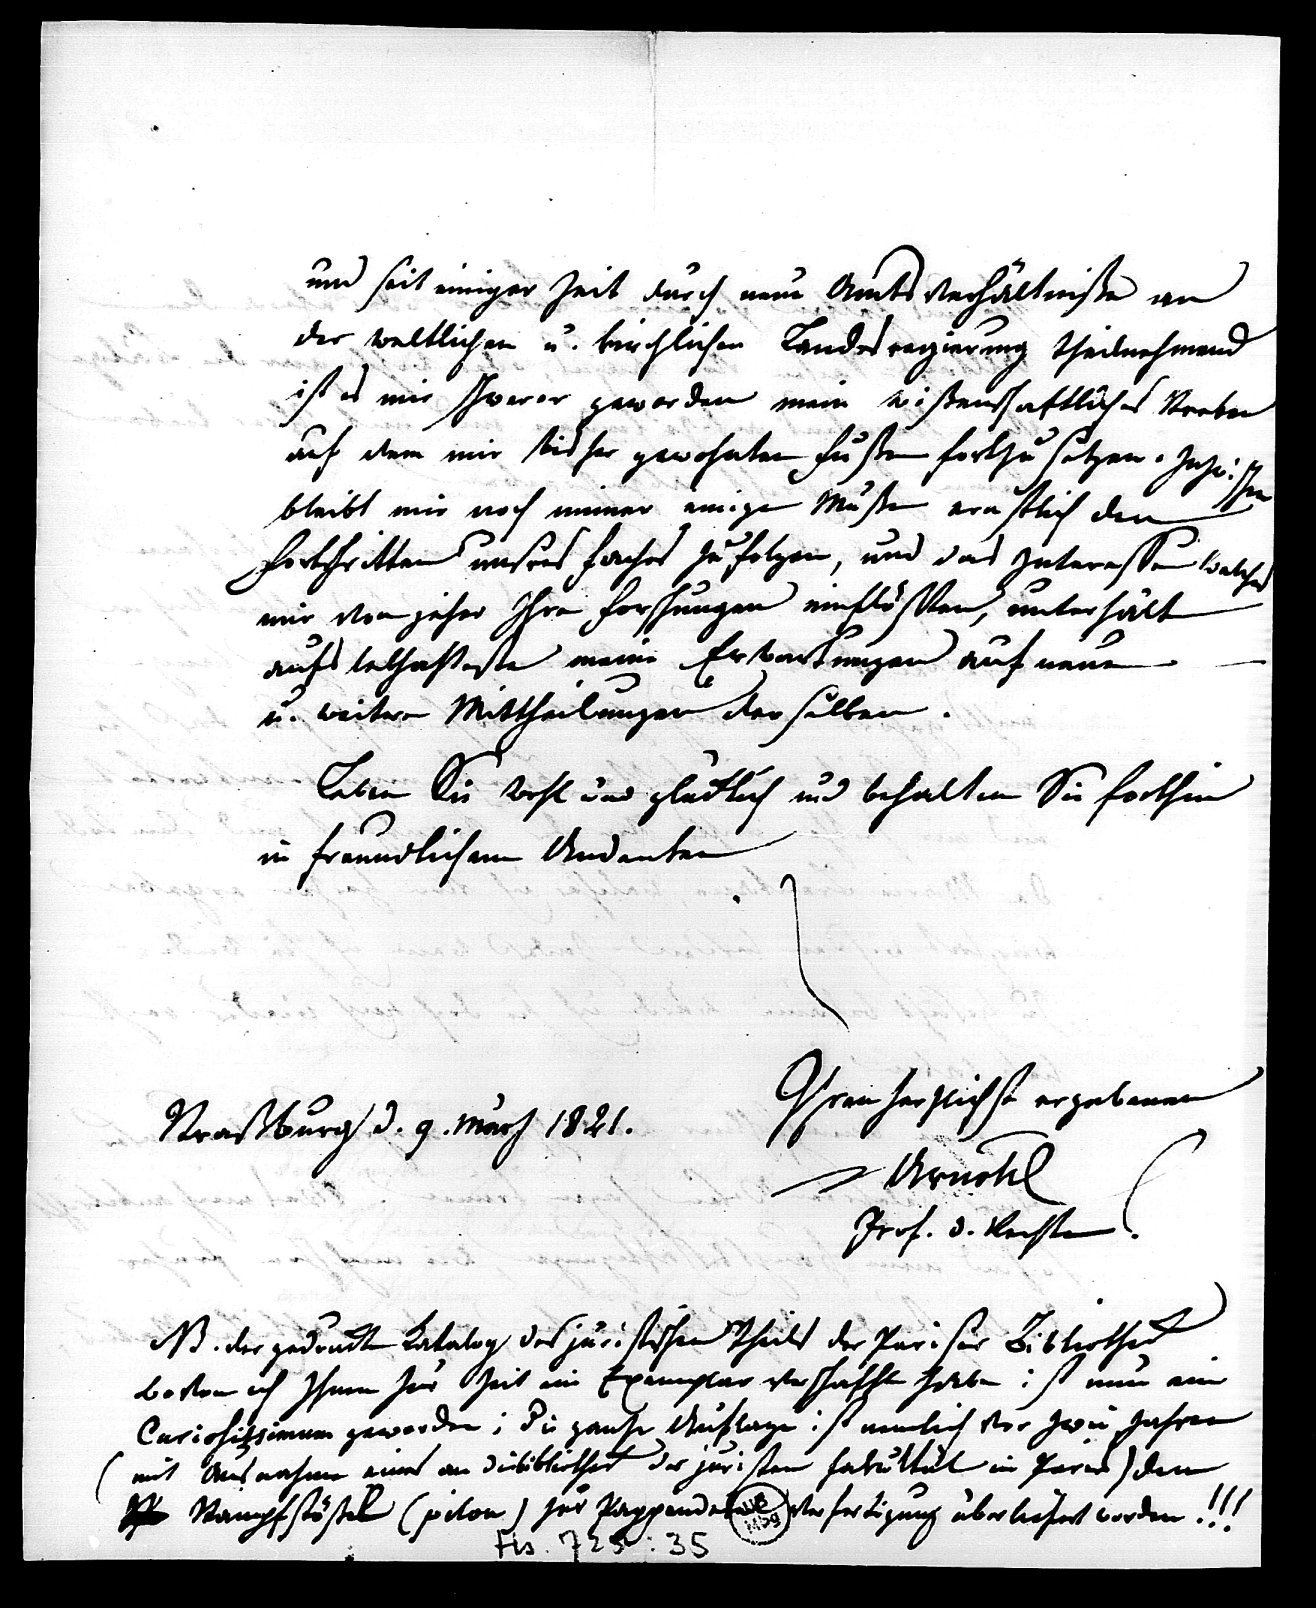 und seit einiger Zeit durch neue Amtsverhältniße an
der weltlichen u. kirchlichen Landesregierung theilnehmend
ist es mir schwerer geworden mein wißenschaftliches Streben
auf dem mir bisher gewohnten Fußen fortzusetzen. Inzwischen
bleibt mir noch immer einige Muße ernstlich den
Fortschritten unsres Faches zu folgen, und das Interesse welches
mir von jeher Ihre Forschungen einflößten, unterhält
aufs lebhafteste meine Erwartungen auf neue
u. weitere Mittheilungen derselben.
Leben Sie wohl und glücklich und behalten Sie forthin
in freundlichem Andenken
Ihren herzlichst ergebenen
Straßburg d. 9. März 1821.
Arnold
Prof. d. Rechte.
NB. der gedruckte Katalog des juristischen Theils der Pariser Bibliothek
wovon ich Ihnen zur Zeit ein Exemplar verschafft habe ist nun ein
Curiosissimum geworden; die ganze Auflage ist nemlich vor zwei Jahren
(mit Ausnahme eines an die Bibliothek der juristen Fakultät in Paris) den
Stampfstößel (pilon) zur Pappendeckel Verfertigung überliefert worden!!!
Hs. 725:35